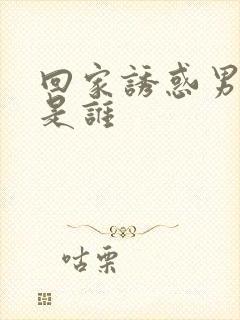 回家誘惑男
是誰
咕栗